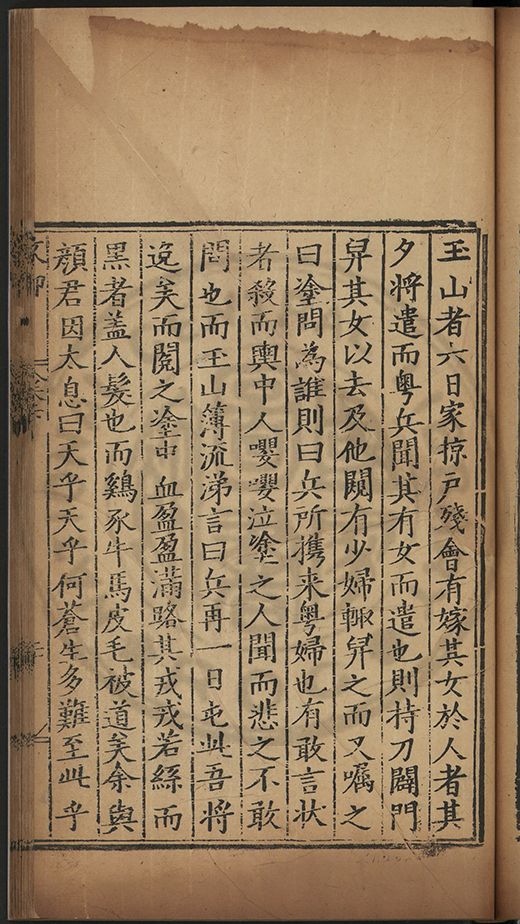 玉山者六日家掠戸殘會有嫁其女於人者其
夕將遣而粤兵聞其有女而遣也則持刀闢門
舁其女以去及他闕有少婦輙舁之而又嘱之
曰塗問為誰則曰兵所携来粤婦也有敢言状
者殺而輿中人嚶嚶泣塗之人聞而悲之不敢
問也而玉山簿流涕言曰兵再一日屯此吾將
逸矣而閱之塗中血盈盈滿路其戎戎若絲而
黒者盖人髪也而鷄豕牛馬皮毛被道矣余與
顔君因太息曰天乎天乎何蒼生多難至此乎